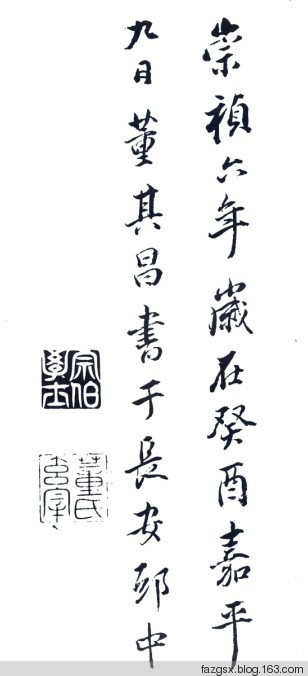 崇禎六年歲在癸酉嘉平
九日董其昌書于長安邸中
宗伯學士
董氏玄宰
fazgsx.blog.163.com